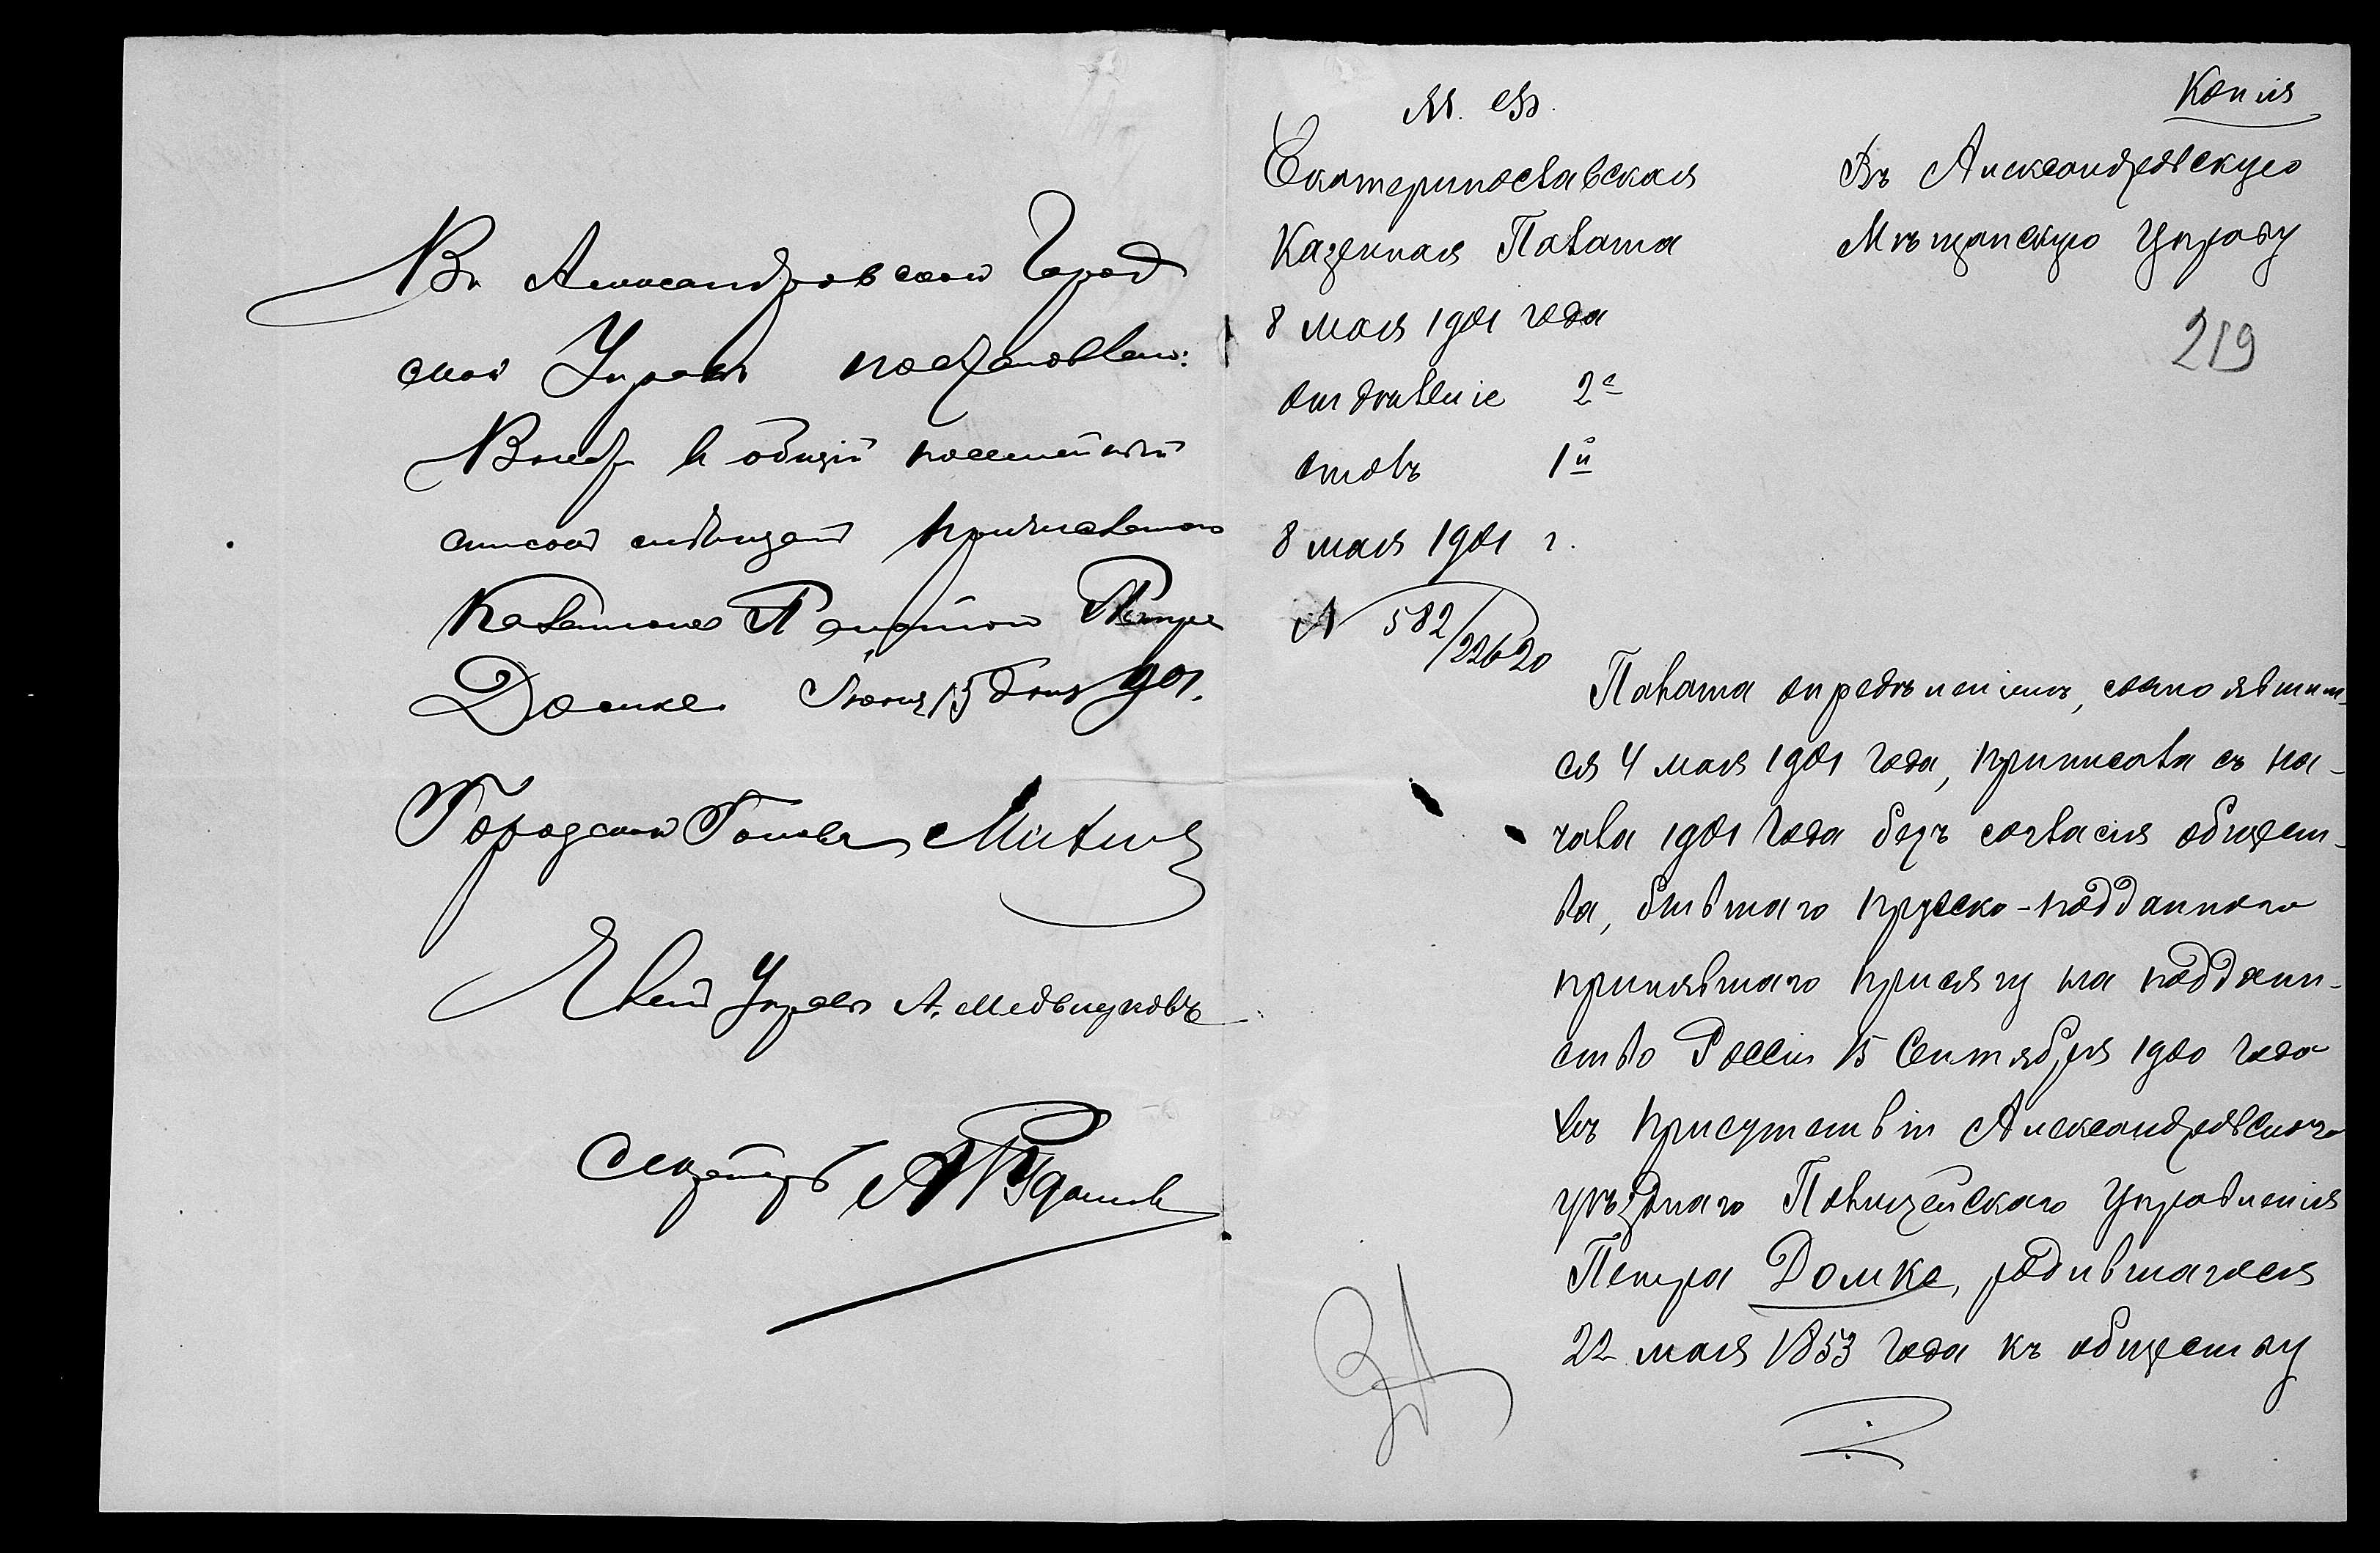 Въ Александровской Город
ской Управѣ постановлено:
Внести въ общій посемейный
списокъ мѣщанъ причисленнаго
Казенною Палатою Петра
Домке. Іюня 15 дня 901.
Городской Голова
Членъ Управы А. Медвѣдковъ
Секретарь
Копія
М. Ф.
Екатеринославская
Казенная Палата
8 мая 1901 года
отдѣленіе 2е
столъ 1й
8 мая 1901 г.
№ 582/22620
Въ Александровскую
Мѣщанскую Управу
219
Палата опредѣленіемъ, состоявшим-
ся 4 мая 1901 года, приписала съ на-
чала 1901 года безъ согласія общест-
ва, бывшаго прусско-подданнаго
принявшаго присягу на поддан-
ство Россіи 15 Сентября 1900 года
въ присутствіи Александровскаго
уѣзднаго Полицейскаго Управленія
Петра Домке, родившагося
22 мая 1853 года къ обществу